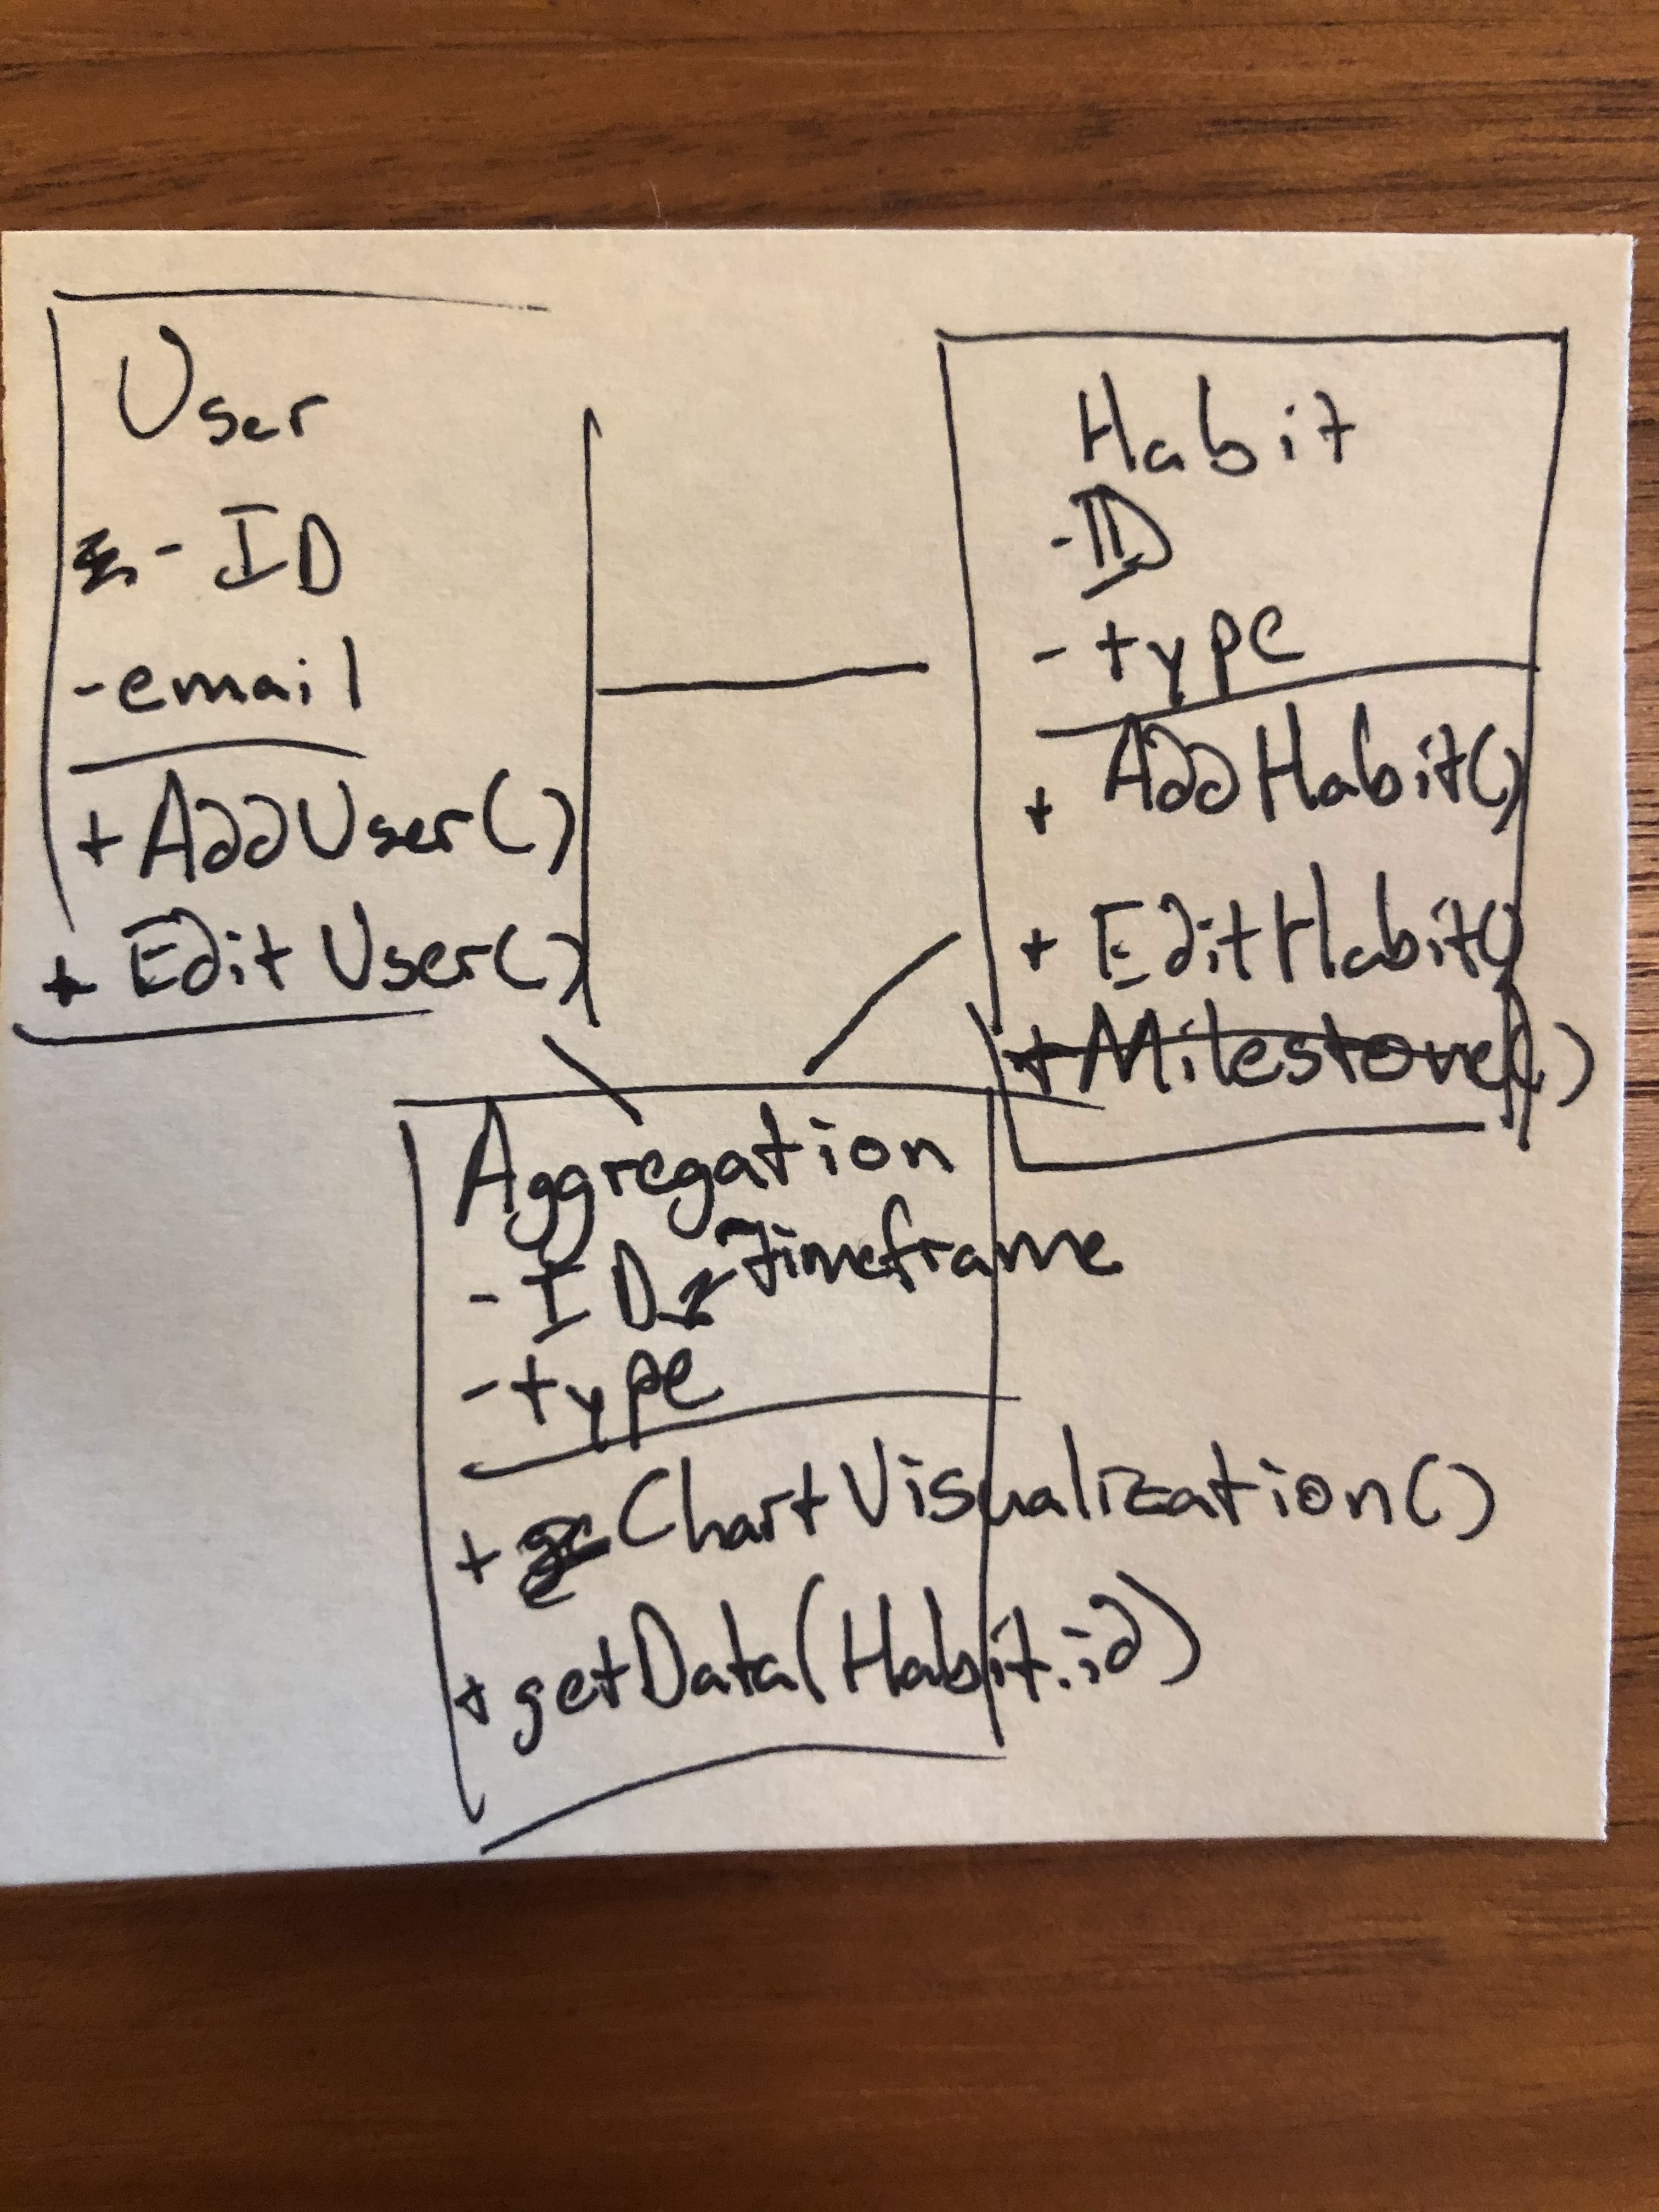 User
- ID
- email
+ AddUser()
+ EditUser()
Habit
- ID
- type
+ AddHabit()
+ EditHabit()
+ Milestone()
Aggregation
- ID - Timeframe
- type
+ ChartVisualization()
+ getData(Habit.id)